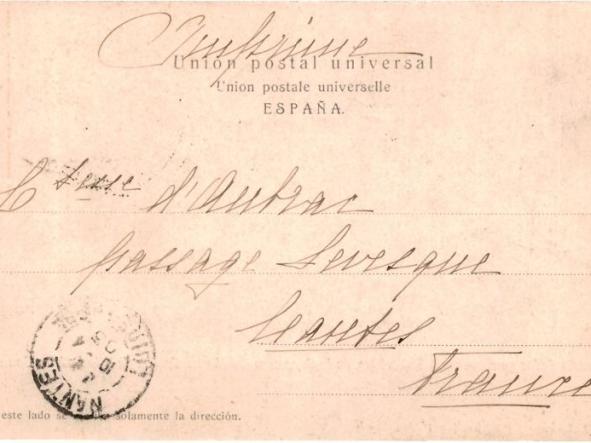 Imprimé
Unión postal universal
Union postale universelle
ESPAÑA.
Ctesse d'Aubrac
passage Levesque
Nantes
France
NANTES
este lado se solamente la dirección.